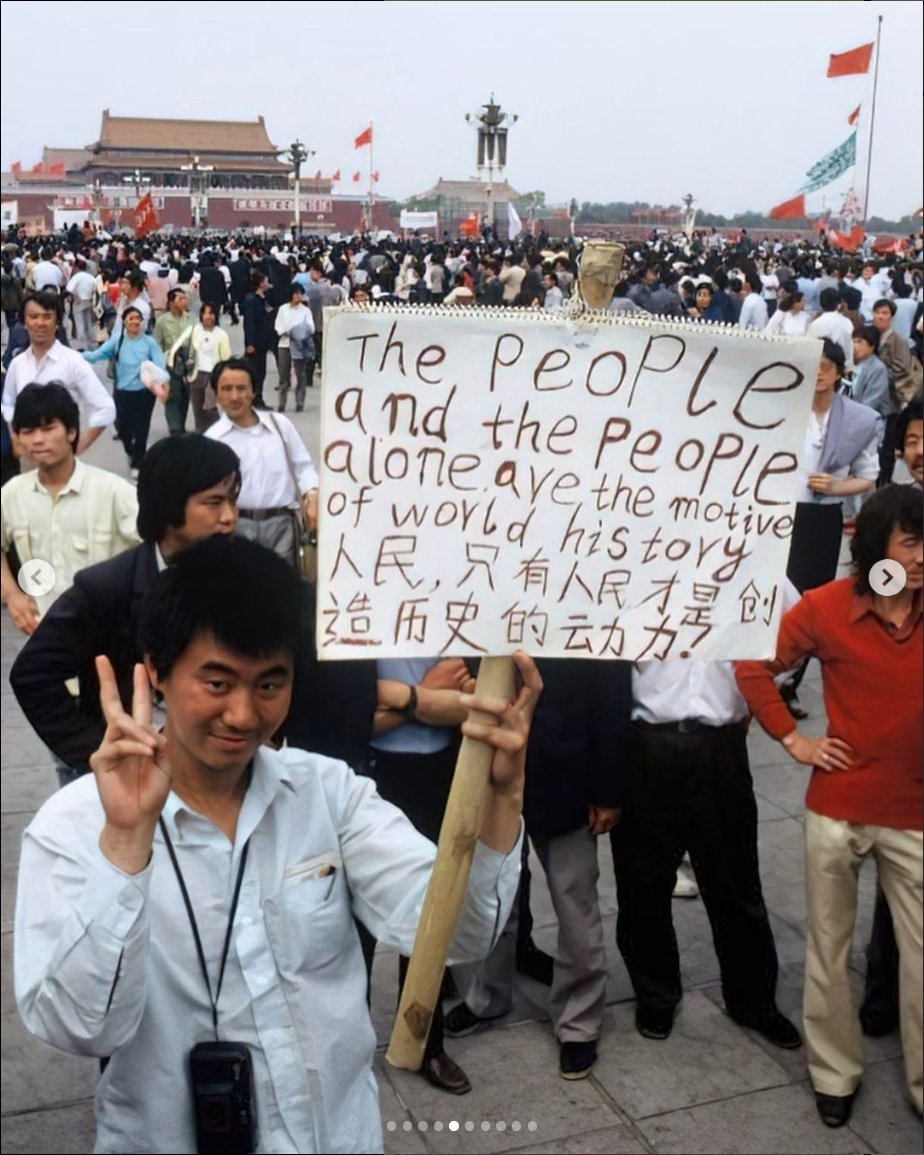 The PeoPLe
and the PeoPLe
alone are the motive
of world history
人民,只有人民才是创
造历史的动力!